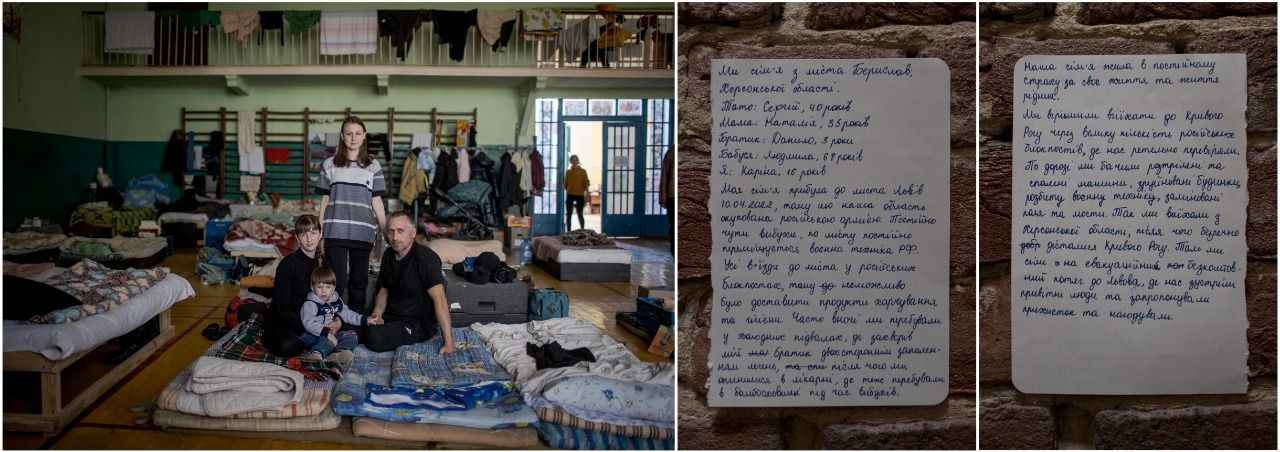 Ми сім'я з міста Берислав,
Херсонської області.
Тато: Сергій, 40 років
Мама: Наталія, 35 років
Братик: Данило, 3 роки
Бабуся: Людмила, 68 років
Я: Каріна, 16 років
Моя сім'я прибула до міста Львів
10.04.2022, тому що наша область
окупована російською армією. Постійно
чути вибухи, по місту постійно
переміщується военна техніка РФ.
Усі в'їзди до міста у російських
блокпостах, тому до неможливо
було доставити продукти харчування
та гігієни. Часто вночі ми перебували
у холодних підвалах, де захворів
мій братик двохстороннім запален-
ням легень, після чого ми
опинилися в лікарні, де теж перебували
в бомбосховищі під час вибухів.
Наша сім'я жила в постійному
страху за своє життя та життя
рідних.
Ми вирішили виїхати до Кривого
Рогу через велику кількість російських
блокпостів, де нас ретельно перевіряли.
По дорозі ми бачили розтріляні та
спалені машини, зруйновані будинки,
розбиту военну техніку, заміновані
поля та мости. Так ми виїхали з
Херсонської області, після чого безпечно
добр дісталися Кривого Рогу. Там ми
сіли на евакуаційний безкоштов-
ний потяг до Львова, де нас зустріли
привітні люди та запропонували
прихисток та нагодували.